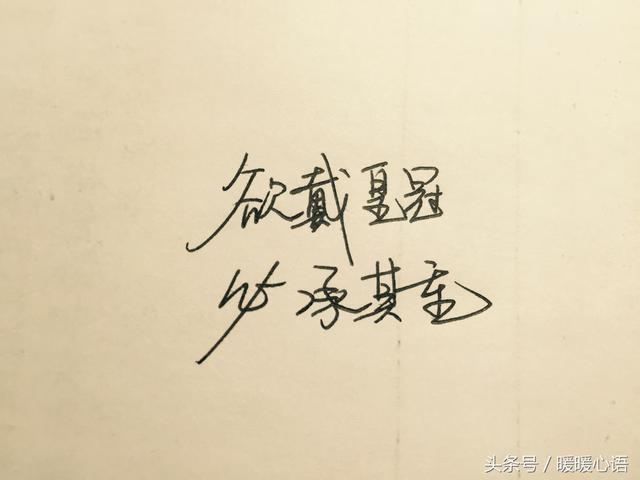 欲戴皇冠
必承其重
头条号／暖暖心语